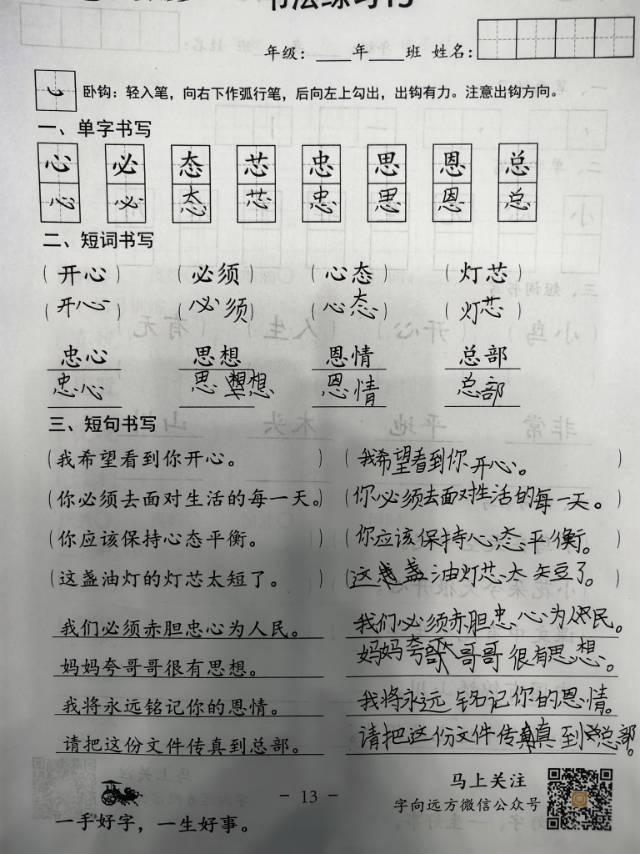 书法练习13
年级：____年____班 姓名：
卧钩：轻入笔，向右下作弧行笔，后向左上勾出，出钩有力。注意出钩方向。
一、单字书写
心 必 态 芯 忠 思 恩 总
心 必 态 芯 忠 思 恩 总
二、短词书写
（开心） （必须） （心态） （灯芯）
（开心） （必须） （心态） （灯芯）
忠心 思想 恩情 总部
忠心 思想 恩情 总部
三、短句书写
（我希望看到你开心。） （我希望看到你开心。）
（你必须去面对生活的每一天。） （你必须去面对性活的每一天。）
（你应该保持心态平衡。） （你应该保持心态平衡。）
（这盏油灯的灯芯太短了。） （这盏油灯芯太短了。）
我们必须赤胆忠心为人民。 我们必须赤胆忠心为人民。
妈妈夸哥哥很有思想。 妈妈夸哥哥很有思想。
我将永远铭记你的恩情。 我将永远铭记你的恩情。
请把这份文件传真到总部。 请把这份文件传真到总部。
一手好字，一生好事。
- 13 -
马上关注
字向远方微信公众号